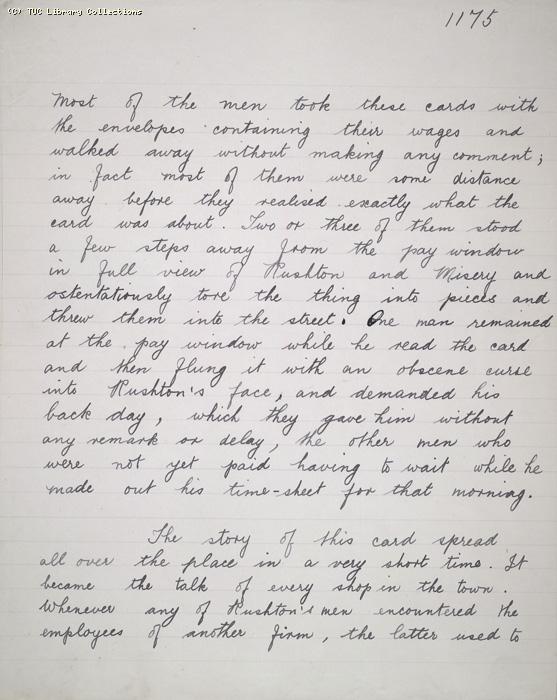 (C) TUC Library Collections
1175
Most of the men took these cards with
the envelopes containing their wages and
walked away without making any comment;
in fact most of them were some distance
away before they realised exactly what the
card was about. Two or three of them stood
a few steps away from the pay window
in full view of Rushton and Misery and
ostentatiously tore the thing into pieces and
threw them into the street. One man remained
at the pay window while he read the card
and then flung it with an obscene curse
into Rushton's face, and demanded his
back day, which they gave him without
any remark or delay, the other men who
were not yet paid having to wait while he
made out his time-sheet for that morning.
The story of this card spread
all over the place in a very short time. It
became the talk of every shop in the town.
Whenever any of Rushton's men encountered the
employees of another firm, the latter used to